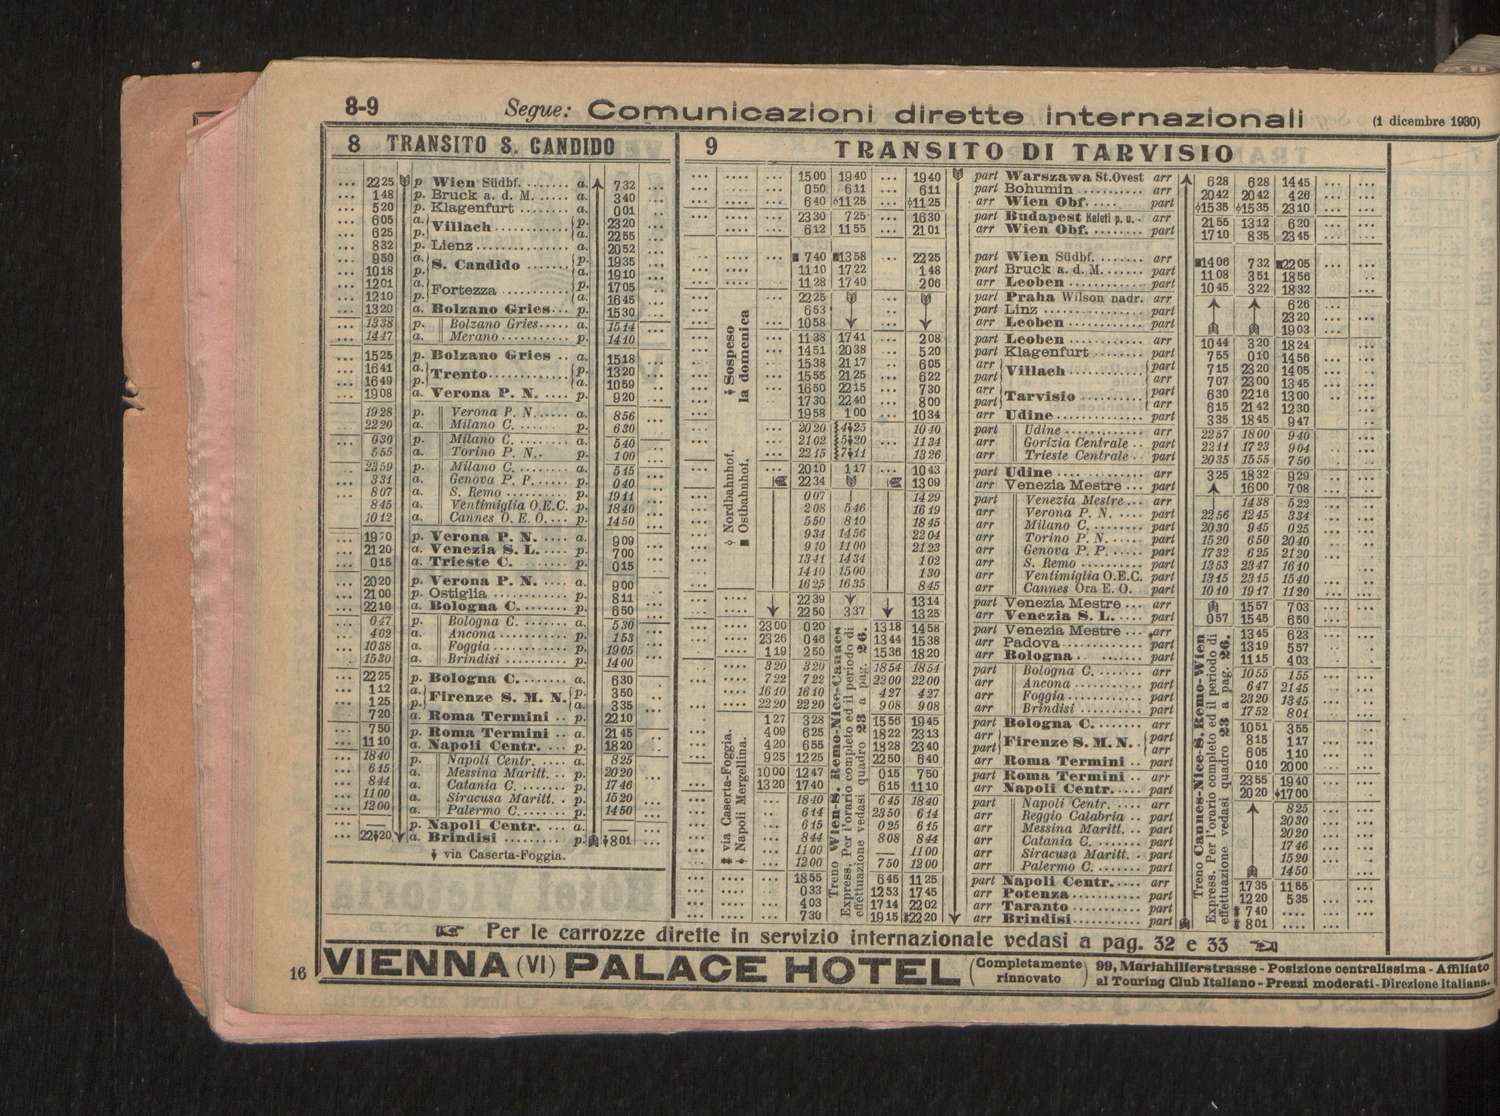 8-9
Segue: Comunicazioni dirette internazionali
(1 dicembre 1930)
8 TRANSITO S. CANDIDO
... 22 25 p. Wien Südbf. ....... a. 7 32 ...
... 1 48 p. Bruck a. d. M. ..... a. 3 40 ...
... 5 20 p. Klagenfurt ........ a. 0 01 ...
... 6 05 a. Villach ........... p. 23 20 ...
... 6 25 p. a. 22 55 ...
... 8 32 p. Lienz ............ a. 20 52 ...
... 9 50 a. S. Candido ....... p. 19 35 ...
... 10 18 p. a. 19 10 ...
... 12 01 a. Fortezza .......... p. 17 05 ...
... 12 10 p. a. 16 45 ...
... 13 20 a. Bolzano Gries ... p. 15 30 ...
... 13 38 p. Bolzano Gries ..... a. 15 14 ...
... 14 17 a. Merano ........... p. 14 10 ...
... 15 25 p. Bolzano Gries .. a. 15 18 ...
... 16 41 a. Trento ............ p. 13 20 ...
... 16 49 p. a. 10 59 ...
... 19 08 a. Verona P. N. .... p. 9 20 ...
19 28 p. Verona P. N. ..... a. 8 56
22 20 a. Milano C. ........ p. 6 30
... 0 30 p. Milano C. ........ a. 5 40 ...
5 55 a. Torino P. N. .. p. 1 00
23 59 p. Milano C. ........ a. 5 15
3 31 a. Genova P. P. ..... p. 0 40
8 07 a. S. Remo .......... p. 19 11
8 45 a. Ventimiglia O.E.C. p. 18 40
10 12 a. Cannes O. E. O. ... p. 14 50
p. Verona P. N. .... a. 9 09
21 20 a. Venezia S. L. .... p. 7 00
0 15 a. Trieste C. ....... p. 0 15
20 20 p. Verona P. N. .... a. 9 00
21 00 p. Ostiglia .......... a. 8 11
22 10 a. Bologna C. ....... p. 6 50
0 47 p. Bologna C. ....... a. 5 30
4 02 a. Ancona .......... p. 1 53
10 38 a. Foggia ........... p. 19 05
15 30 a. Brindisi .......... p. 14 00
22 25 p. Bologna C. ....... a. 6 30
1 12 a. Firenze S. M. N. p. 3 50
1 25 p. a. 3 35
7 20 a. Roma Termini .. p. 22 10
7 50 p. Roma Termini .. a. 21 45
11 10 a. Napoli Centr. ... p. 18 20
18 40 p. Napoli Centr. .... a. 8 25
6 15 a. Messina Maritt. .. p. 20 20
8 44 a. Catania C. ....... p. 17 46
11 00 a. Siracusa Maritt. . p. 15 20
12 00 a. Palermo C. ...... p. 14 50
— p. Napoli Centr. ... a. —
22‡20 a. Brindisi ......... p. ‡8 01
‡ via Caserta-Foggia.
9 TRANSITO DI TARVISIO
15 00 19 40 ... 19 40 part Warszawa St. Ovest arr 6 28 6 28 14 45
0 50 6 11 6 11 part Bohumin ........... arr 20 42 20 42 4 26
6 40 ◊11 25 ◊11 25 arr Wien Obf. .... part ◊15 35 ◊15 35 23 10
23 30 7 25 ... 16 30 part Budapest Keleti p. u. . arr 21 55 13 12 6 20
6 12 11 55 21 01 arr Wien Obf. ........ part 17 10 8 35 23 45
■ 7 40 ■13 58 22 25 part Wien Südbf. ........ arr ■14 06 7 32 ■22 05
11 10 17 22 1 48 part Bruck a. d. M. ...... part 11 08 3 51 18 56
11 28 17 40 2 06 arr Leoben ............ part 10 45 3 22 18 32
22 25 part Praha Wilson nadr. arr 6 26
6 53 part Linz .............. part 23 20
10 58 arr Leoben ............ part 19 03
11 38 17 41 2 08 part Leoben ............ arr 10 44 3 20 18 24
14 51 20 38 ... 5 20 part Klagenfurt ......... part 7 55 0 10 14 56
15 38 21 17 6 05 arr Villach ............ part 7 15 23 20 14 05
15 55 21 25 ... 6 22 part arr 7 07 23 00 13 45
16 50 22 15 ... 7 30 arr Tarvisio .......... part 6 30 22 16 13 00
17 30 22 40 8 00 part arr 6 15 21 42 12 30
19 58 1 00 10 34 arr Udine ............. part 3 35 18 45 9 47
20 20 4‡25 10 40 part Udine ............. arr 22 57 18 00 9 40
21 02 5‡20 ... 11 34 arr Gorizia Centrale .. part 22 11 17 23 9 04
22 15 7‡11 13 26 arr Trieste Centrale .. part 20 35 15 55 7 50
20 10 1 17 ... 10 43 part Udine ............. arr 3 25 18 32 9 29
22 34 13 09 arr Venezia Mestre .... part 16 00 7 08
0 07 14 29 part Venezia Mestre ... arr 14 38 5 22
2 08 5 46 16 19 arr Verona P. N. ..... part 22 56 12 45 3 34
5 50 8 10 18 45 arr Milano C. ......... part 20 30 9 45 0 25
9 34 14 56 22 04 arr Torino P. N. ...... part 15 20 6 50 20 40
9 10 11 00 21 23 arr Genova P. P. ..... part 17 32 6 25 21 20
13 41 14 34 1 02 arr S. Remo .......... part 13 53 23 47 16 10
14 10 15 00 1 30 arr Ventimiglia O.E.C. part 13 15 23 15 15 40
16 25 16 35 8 45 arr Cannes Ora E. O. . part 10 10 19 17 11 20
22 39 13 14 part Venezia Mestre ... arr 15 57 7 03
22 50 3 37 13 25 arr Venezia S. L. ..... part 0 57 15 45 6 50
23 00 0 20 13 18 14 58 part Venezia Mestre ... arr 13 45 6 23
23 26 0 46 13 44 15 38 arr Padova ............ part 13 19 5 57
1 19 2 50 15 36 18 20 arr Bologna ........... part 11 15 4 03
3 20 3 20 18 54 18 54 part Bologna C. ....... arr 10 55 1 55
7 22 7 22 22 00 22 00 arr Ancona ........... part 6 47 21 45
16 10 16 10 4 27 4 27 arr Foggia ............ part 23 20 13 45
22 20 22 20 9 08 9 08 arr Brindisi ........... part 17 52 8 01
1 27 3 28 15 56 19 45 part Bologna C. ....... arr 10 51 3 55
4 09 6 25 18 22 23 13 arr Firenze S. M. N. . part 8 15 1 17
4 20 6 55 18 28 23 40 part arr 6 05 1 10
9 25 12 25 22 50 6 40 arr Roma Termini .. part 0 10 20 00
10 00 12 47 0 15 7 50 part Roma Termini .. arr 23 55 19 40
13 20 17 40 6 15 11 10 arr Napoli Centr. .... part 20 20 ‡17 00
18 40 6 45 18 40 part Napoli Centr. .... arr 8 25
6 14 23 50 6 14 arr Reggio Calabria .. part 20 30
6 15 0 25 6 15 arr Messina Maritt. .. part 20 20
8 44 8 08 8 44 arr Catania C. ........ part 17 46
11 00 — 11 00 arr Siracusa Maritt. . part 15 20
12 00 7 50 12 00 arr Palermo C. ....... part 14 50
18 55 6 45 11 25 part Napoli Centr. .... arr 17 35 11 55
0 33 12 53 17 45 arr Potenza ........... part 12 20 5 35
4 03 17 14 22 02 arr Taranto ........... part 7 40 ....
7 30 19 15 22 20 arr Brindisi ........... part 8 01 ....
‡ Sospeso
la domenica
◊ Nordbahnhof.
■ Ostbahnhof.
via Caserta-Foggia.
Napoli Mergellina.
Treno Wien-S. Remo-Nice-Cannes
Express. Per l'orario completo ed il periodo di
effettuazione vedasi quadro 23 a pag. 26.
Treno Cannes-Nice-S. Remo-Wien
Express. Per l'orario completo ed il periodo di
effettuazione vedasi quadro 23 a pag. 26.
Per le carrozze dirette in servizio internazionale vedasi a pag. 32 e 33
16
VIENNA (VI) PALACE HOTEL (Completamente rinnovato)
99, Mariahilferstrasse - Posizione centralissima - Affiliato
al Touring Club Italiano - Prezzi moderati - Direzione italiana.